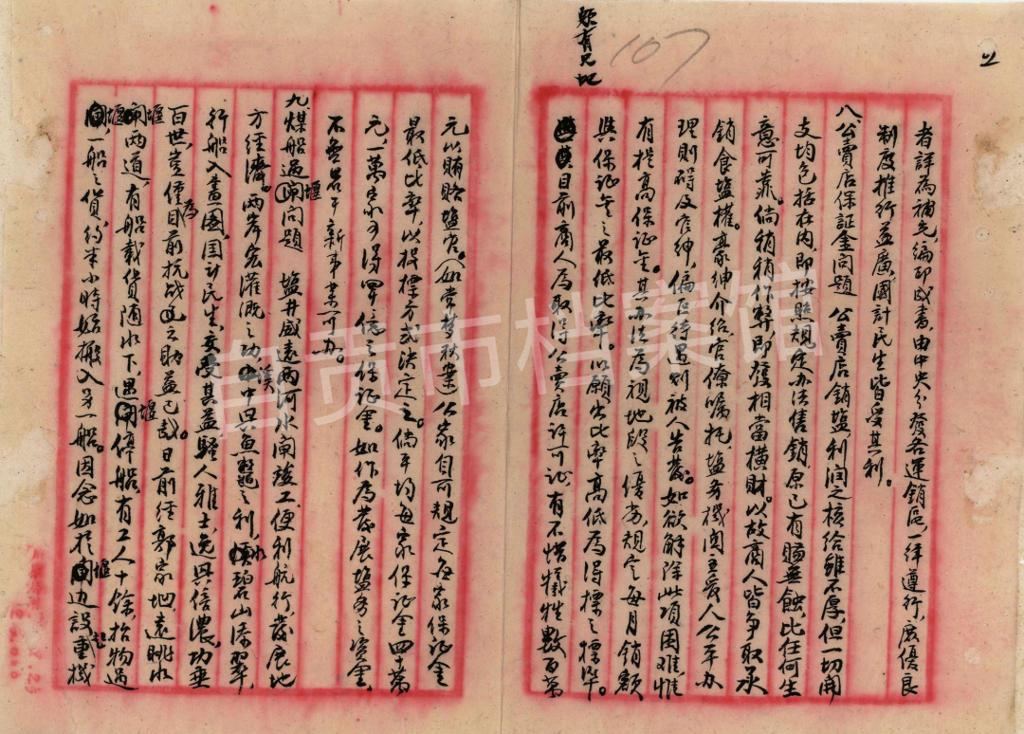 107
者評為補充，編印成書，由中央分發各運銷區，一律遵行，庶優良
制度推行益廣，國計民生皆受其利。
八、公賣店保証金問題　公賣店銷鹽利潤之核給雖不厚，但一切開
支均包括在內，即按照規定办法售銷，原已有贏無蝕，比任何生
意可靠。倘稍稍作弊，即發相當橫財。以故商人皆爭取承
銷食鹽權。豪紳介紹，官僚囑托，鹽务機関主爱人公平办
理則碍及官紳，偏叵待遇則被人告發。如欲解除此項困难，惟
有提高保証金。其办法為視地段之優劣，規定每月銷額
與保証金之最低比率。以願出比率高低為得標之標準。
目前商人為取得公賣店許可证，有不惜犧牲數百萬
元以賄賂鹽官。（如常梦秋案）公家自可規定每家保証金
最低比率，以投標方式決定之。倘平均每家保证金四十萬
元，一萬家可得四十億之保证金。如作為發展鹽务之資金，
不無若干新事業可办。
九、煤船過堰問題　鹽井威遠兩河水閘竣工，便利航行，發展地
方經濟。兩岸宏灌溉之功，中具魚鼈之利，碧山添翠，
行船入畫圖，國計民生，交受其益，騷人雅士，逸興倍濃，功垂
百世，豈僅為目前抗战之助益已哉。日前经郭家坳，遠眺水
堰兩道，有船載貨随水下，遇堰停船，有工人十餘，抬物過
堰，一船之貨，約半小時始搬入另一船。因念如於堰边設起重機